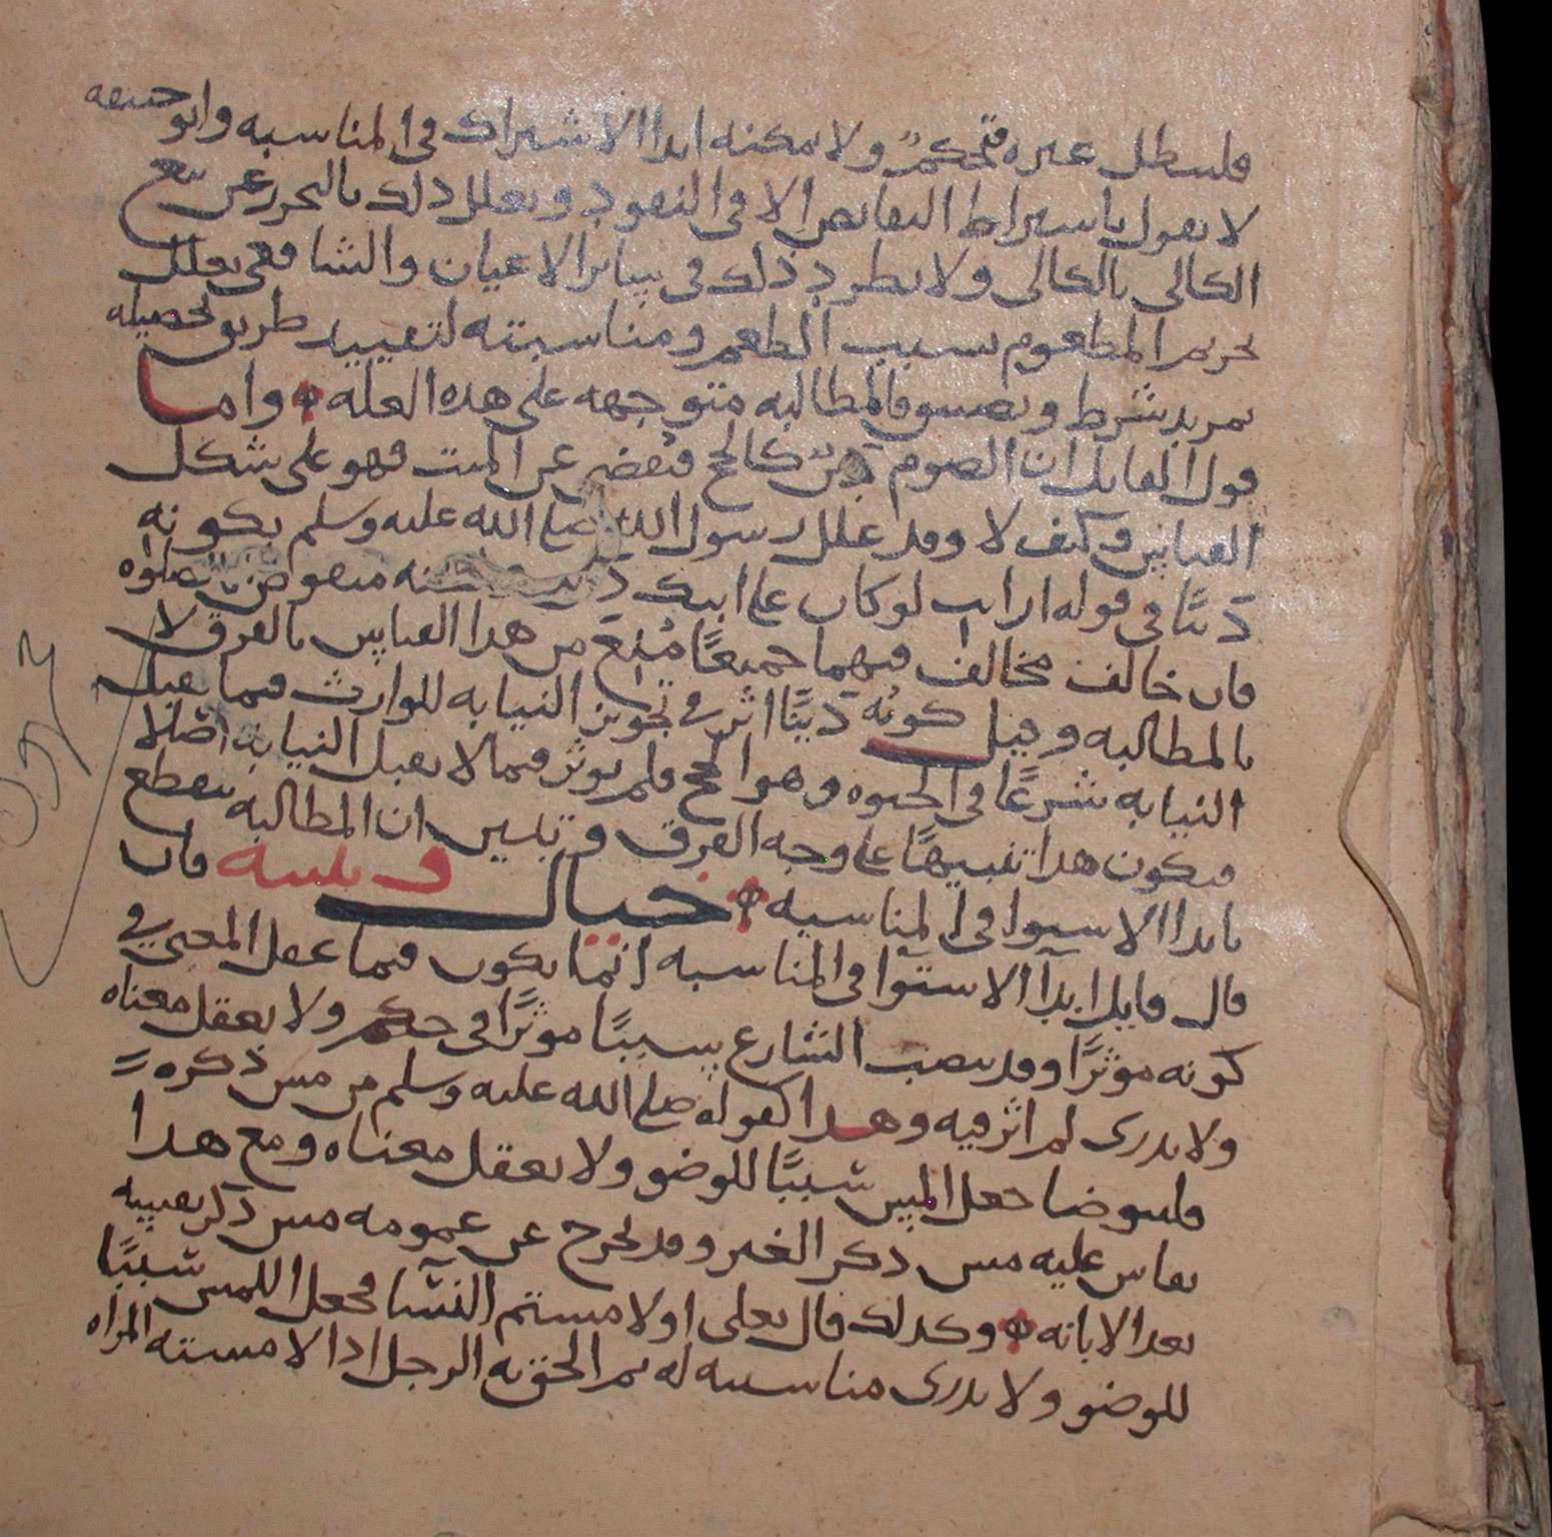 فلسطل عىره فتحكم ولا ىمكنه ابدا الاشتراك فى المناسبه وابو حنيفه
لا يقول باشتراط التقابض الا فى النقود ويعلل ذلك بالتحرز عن بيع
الكالى بالكالى ولا يطرد ذلك فى سائر الاعيان والشافعى يعلل
تحريم المطعوم بسبب الطعم ومناسبته لتقييد طريق تحصيله
بمزيد شرط وتضييق فالمطالبه متوجهه على هذه العله واما
قول القايل ان الصوم دين كالحج فيقضى عن الميت فهو على شكل
القياس وكيف لا وقد علل رسول الله صلى الله عليه وسلم بكونه
دينًا فى قوله ارايت لو كان على ابيك دين منقوض بالصلوه
فان خالف مخالف فيهما جميعًا مُنع من هذا القياس بالفرق لا
بالمطالبه وقيل كونُه دينًا اثر فى تجويز النيابه للوارث فيما يقبل
النيابه شرعًا فى الحيوه وهو الحج فلم يوثر فيما لا يقبل النيابه اصلا
فيكون هذا تنبيهًا على وجه الفرق وتبين ان المطالبه تنقطع
بابدا الاستوا فى المناسبه خيال وتنبيه فان
قال قايل ابدآ الاستوآ فى المناسبه انما يكون فيما عقل المعنى فى
كونه موثرًا وقد ينصب الشارع سببًا موثرًا فى حكم ولا يعقل معناه
ولا يدرى لم اثر فيه وهذا كقوله صلى الله عليه وسلم من مس ذكره
فليتوضا جعل المس سببًا للوضو ولا يعقل معناه ومع هذا
يقاس عليه مس ذكر الغير وقد يخرج عن عمومه مس ذكر نفسه
بعد الابانه وكذلك قال تعلى او لامستم النسا فجعل اللمس سببًا
للوضو ولا يدرى مناسبته له ثم الحق به الرجل اذا لامسته المراه